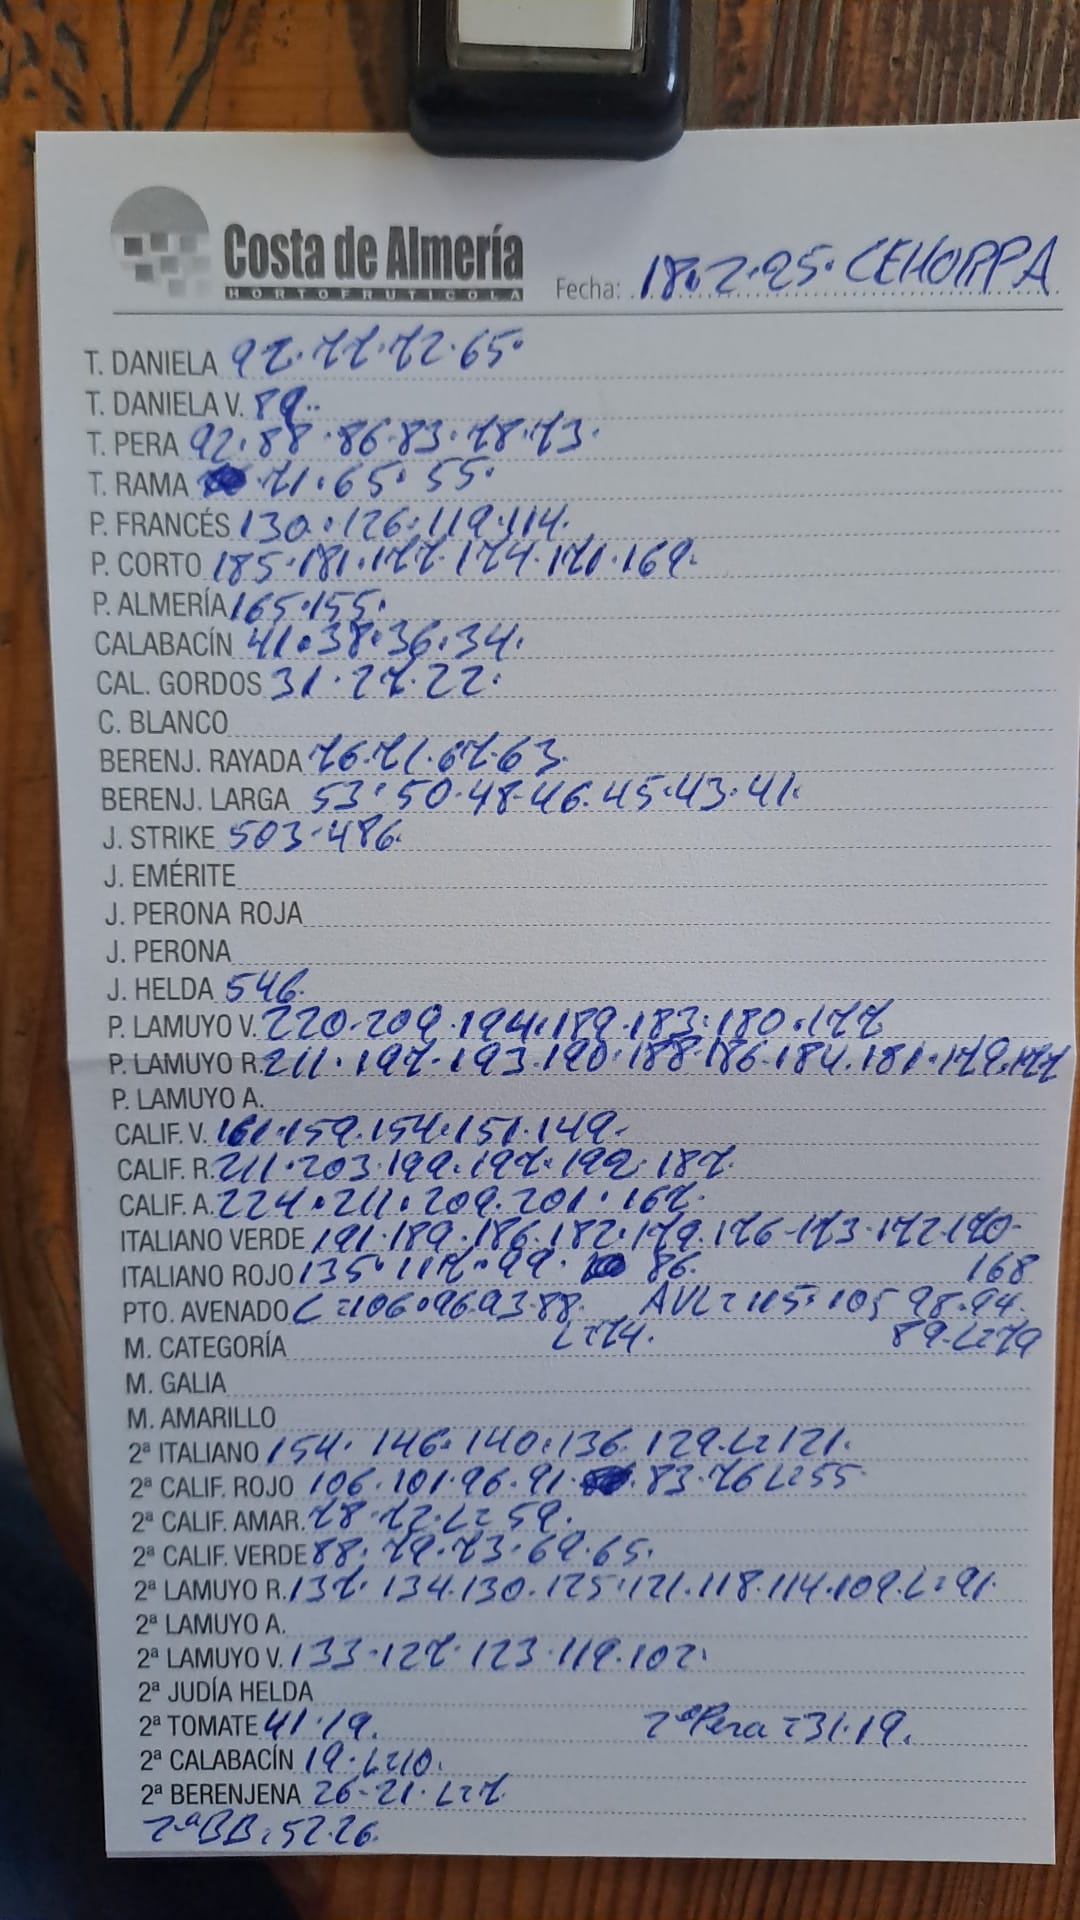 Costa de Almería
HORTOFRUTICOLA
Fecha: 18.2.25. CEHORPA
T. DANIELA 92.77.72.65.
T. DANIELA V. 89..
T. PERA 92.88.86.83.78.73.
T. RAMA 71.65.55.
P. FRANCÉS 130.126.119.114.
P. CORTO 185.181.177.174.171.169.
P. ALMERÍA 165.155.
CALABACÍN 41.38.36.34.
CAL. GORDOS 31.27.22.
C. BLANCO
BERENJ. RAYADA 76.71.67.63.
BERENJ. LARGA 53.50.48.46.45.43.41.
J. STRIKE 503.486.
J. EMÉRITE
J. PERONA ROJA
J. PERONA
J. HELDA 546.
P. LAMUYO V. 220.209.194.189.183.180.177
P. LAMUYO R. 211.197.193.190.188.186.184.181.179.177
P. LAMUYO A.
CALIF. V. 161.159.154.151.149.
CALIF. R. 211.203.199.197.192.187.
CALIF. A. 224.211.209.201.167.
ITALIANO VERDE 191.189.186.182.179.176-173.172.170-
168
ITALIANO ROJO 135.117.99. 86.
PTO. AVENADO C=106.96.93.88. AVL=115.105 98.94.
L=74. 89.L=79
M. CATEGORÍA
M. GALIA
M. AMARILLO
2ª ITALIANO 154. 146.140.136.129.L=121.
2ª CALIF. ROJO 106.101.96.91. 83.76 L=55
2ª CALIF. AMAR. 78.72.L=59.
2ª CALIF. VERDE 88.79.73.69.65.
2ª LAMUYO R. 137.134.130.125.121.118.114.109.L=91.
2ª LAMUYO A.
2ª LAMUYO V. 133.127.123.119.102.
2ª JUDÍA HELDA
2ª TOMATE 41.19. 2ªPera=31.19.
2ª CALABACÍN 19.L=10.
2ª BERENJENA 26-21.L=7.
2ªBB=52.26.